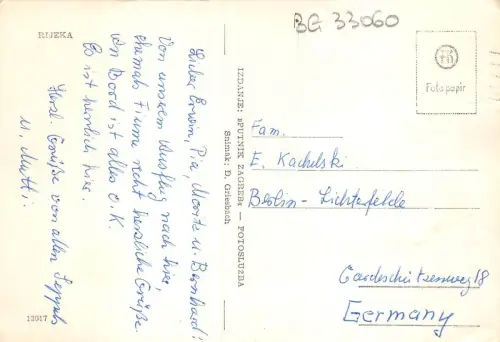 RIJEKA
BG 33060
Lieber Erwin, Pia, Moritz u. Bernhard!
Von unserem Ausflug nach hier,
ehemals Fiume recht herzliche Grüße.
An Bord ist alles o.K.
Es ist herrlich hier.
Herzl. Grüße von allen Seppels
u. Mutti.
12017
IZDANJE: »PUTNIK ZAGREB« — FOTOSLUŽBA
Snimak: D. Griesbach
Foto papir
Fam.
E. Kachelski
Berlin-Lichterfelde
Gardeschützenweg 18
Germany